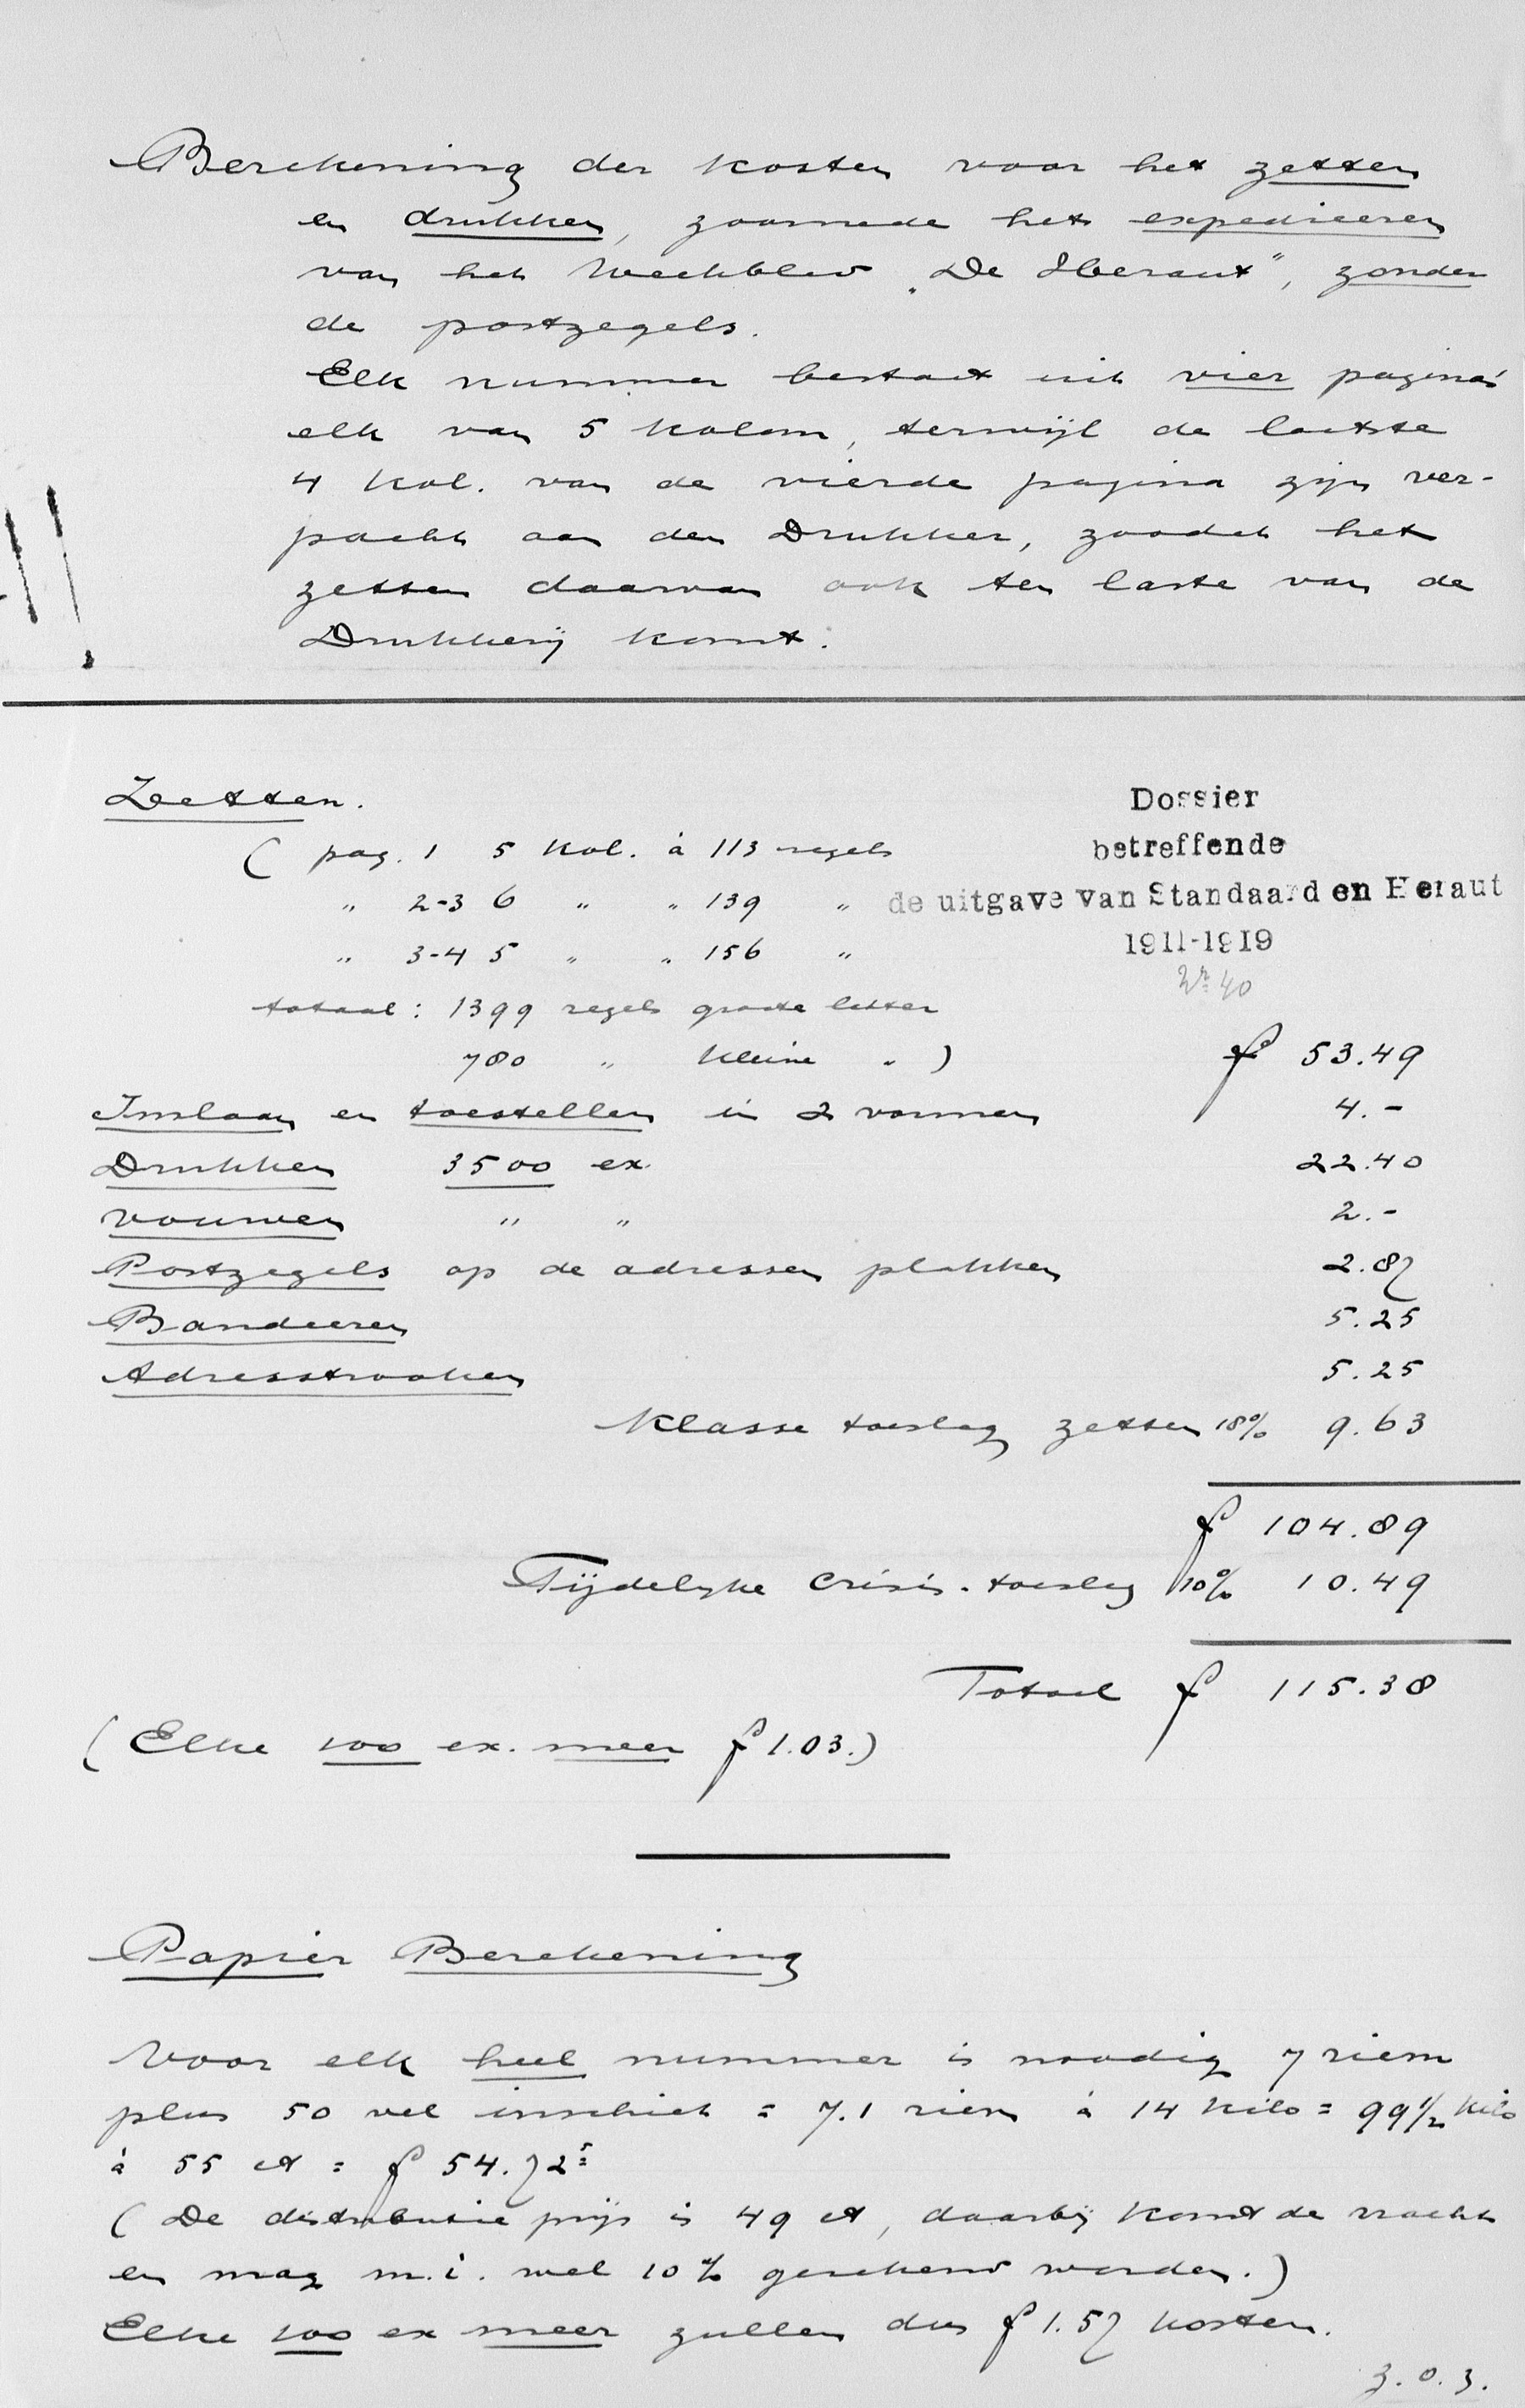 Berekening der kosten voor het zetten
en drukken, zoomede het expedieeren
van het Weekblad „De Heraut", zonder
de postzegels.
Elk nummer bestaat uit vier pagina's
elk van 5 kolom, terwijl de laatste
4 kol. van de vierde pagina zijn ver-
pacht aan den Drukker, zoodat het
zetten daarvan ook ten laste van de
Drukkerij komt.
Zetten.
( pag. 1 5 kol. à 113 regels
" 2-3 6 " " 139 "
" 3-4 5 " " 156 "
totaal: 1399 regels groote letter
780 " kleine " ) f 53.49
Dossier
betreffende
de uitgave van Standaard en Heraut
1911-1919
Nr 40
Inslaan en toestellen in 2 vormen 4.-
Drukken 3500 ex. 22.40
Vouwen " " 2.-
Postzegels op de adressen plakken 2.87
Bandeeren 5.25
Adresstrooken 5.25
Klasse toeslag zetten 18% 9.63
f 104.89
Tijdelijke Crisis-toeslag 10% 10.49
Totaal f 115.38
(Elke 100 ex. meer f 1.03.)
Papier Berekening
Voor elk heel nummer is noodig 7 riem
plus 50 vel inschiet = 7.1 riem à 14 kilo = 99 1/2 kilo
à 55 ct = f 54.72⁵
(De distributie prijs is 49 ct, daarbij komt de vracht
en mag m.i. wel 10% gerekend worden.)
Elke 100 ex meer zullen dus f 1.57 kosten.
z.o.z.